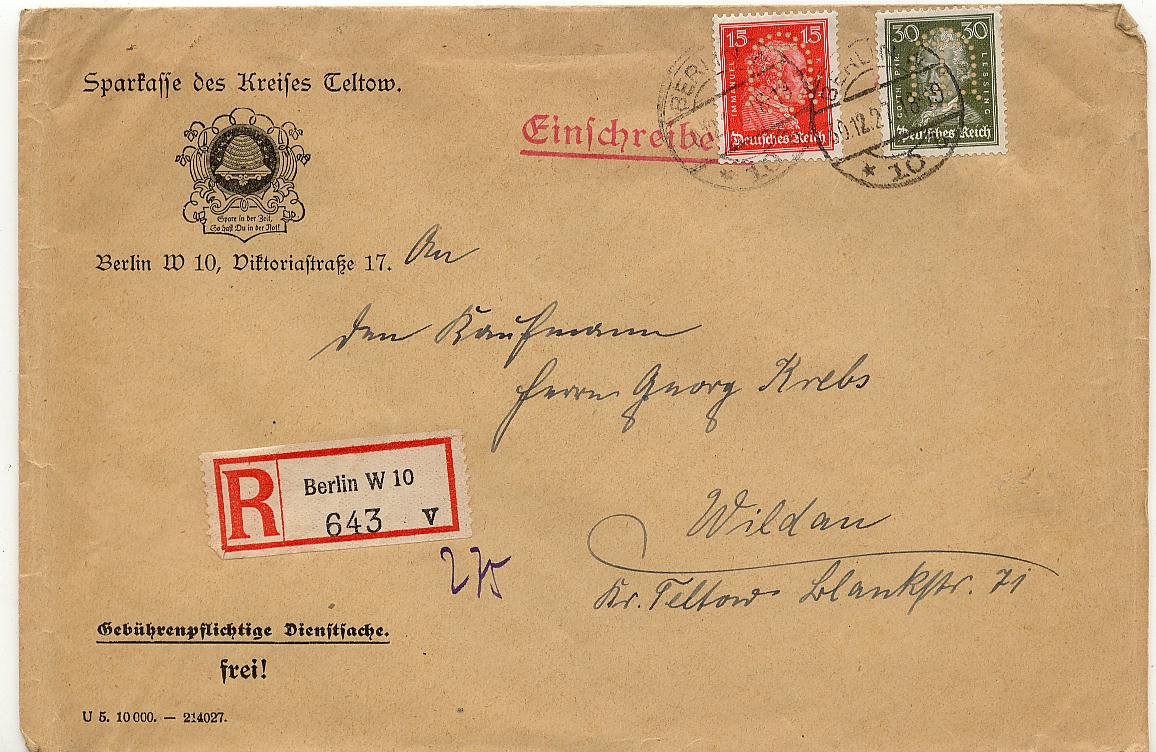 Sparkasse des Kreises Teltow.
Spare in der Zeit,
So hast Du in der Not!
Berlin W 10, Viktoriastraße 17.
Einschreibe
15 15
IMMANUEL
Deutsches Reich
30 30
LESSING
Deutsches Reich
BERLIN
* 10
BERLIN
30.12.2
* 10
An
den Kaufmann
Herrn Georg Krebs
Wildau
Kr. Teltow Blankstr. 71
R
Berlin W 10
643 v
275
Gebührenpflichtige Dienstsache.
frei!
U 5. 10 000. — 214027.